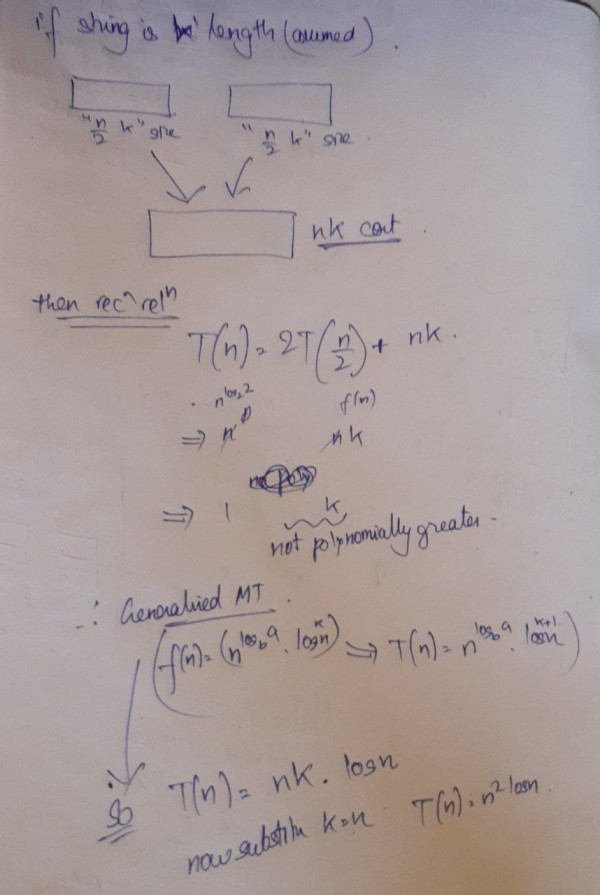 if string is 'k' length (assumed).
"n/2 k" size "n/2 k" size.
nk cost.
then recⁿ relⁿ
T(n) = 2T(n/2) + nk.
n^log₂2 f(n)
⇒ n nk
⇒ 1 k
not polynomially greater.
∴ Generalised MT.
(f(n) = (n^log_b a . log^k n) ⇒ T(n) = n^log_b a . log^k+1 n)
So T(n) = nk . logn
now substitu k=n T(n) = n² logn.